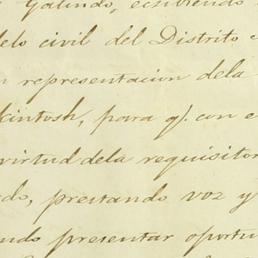 Galindo, escribiendo
delo civil del Distrito
representacion dela
kintosh, para q. con e
virtud dela requisitor
do, prestando voz y
ndo presentar oportu